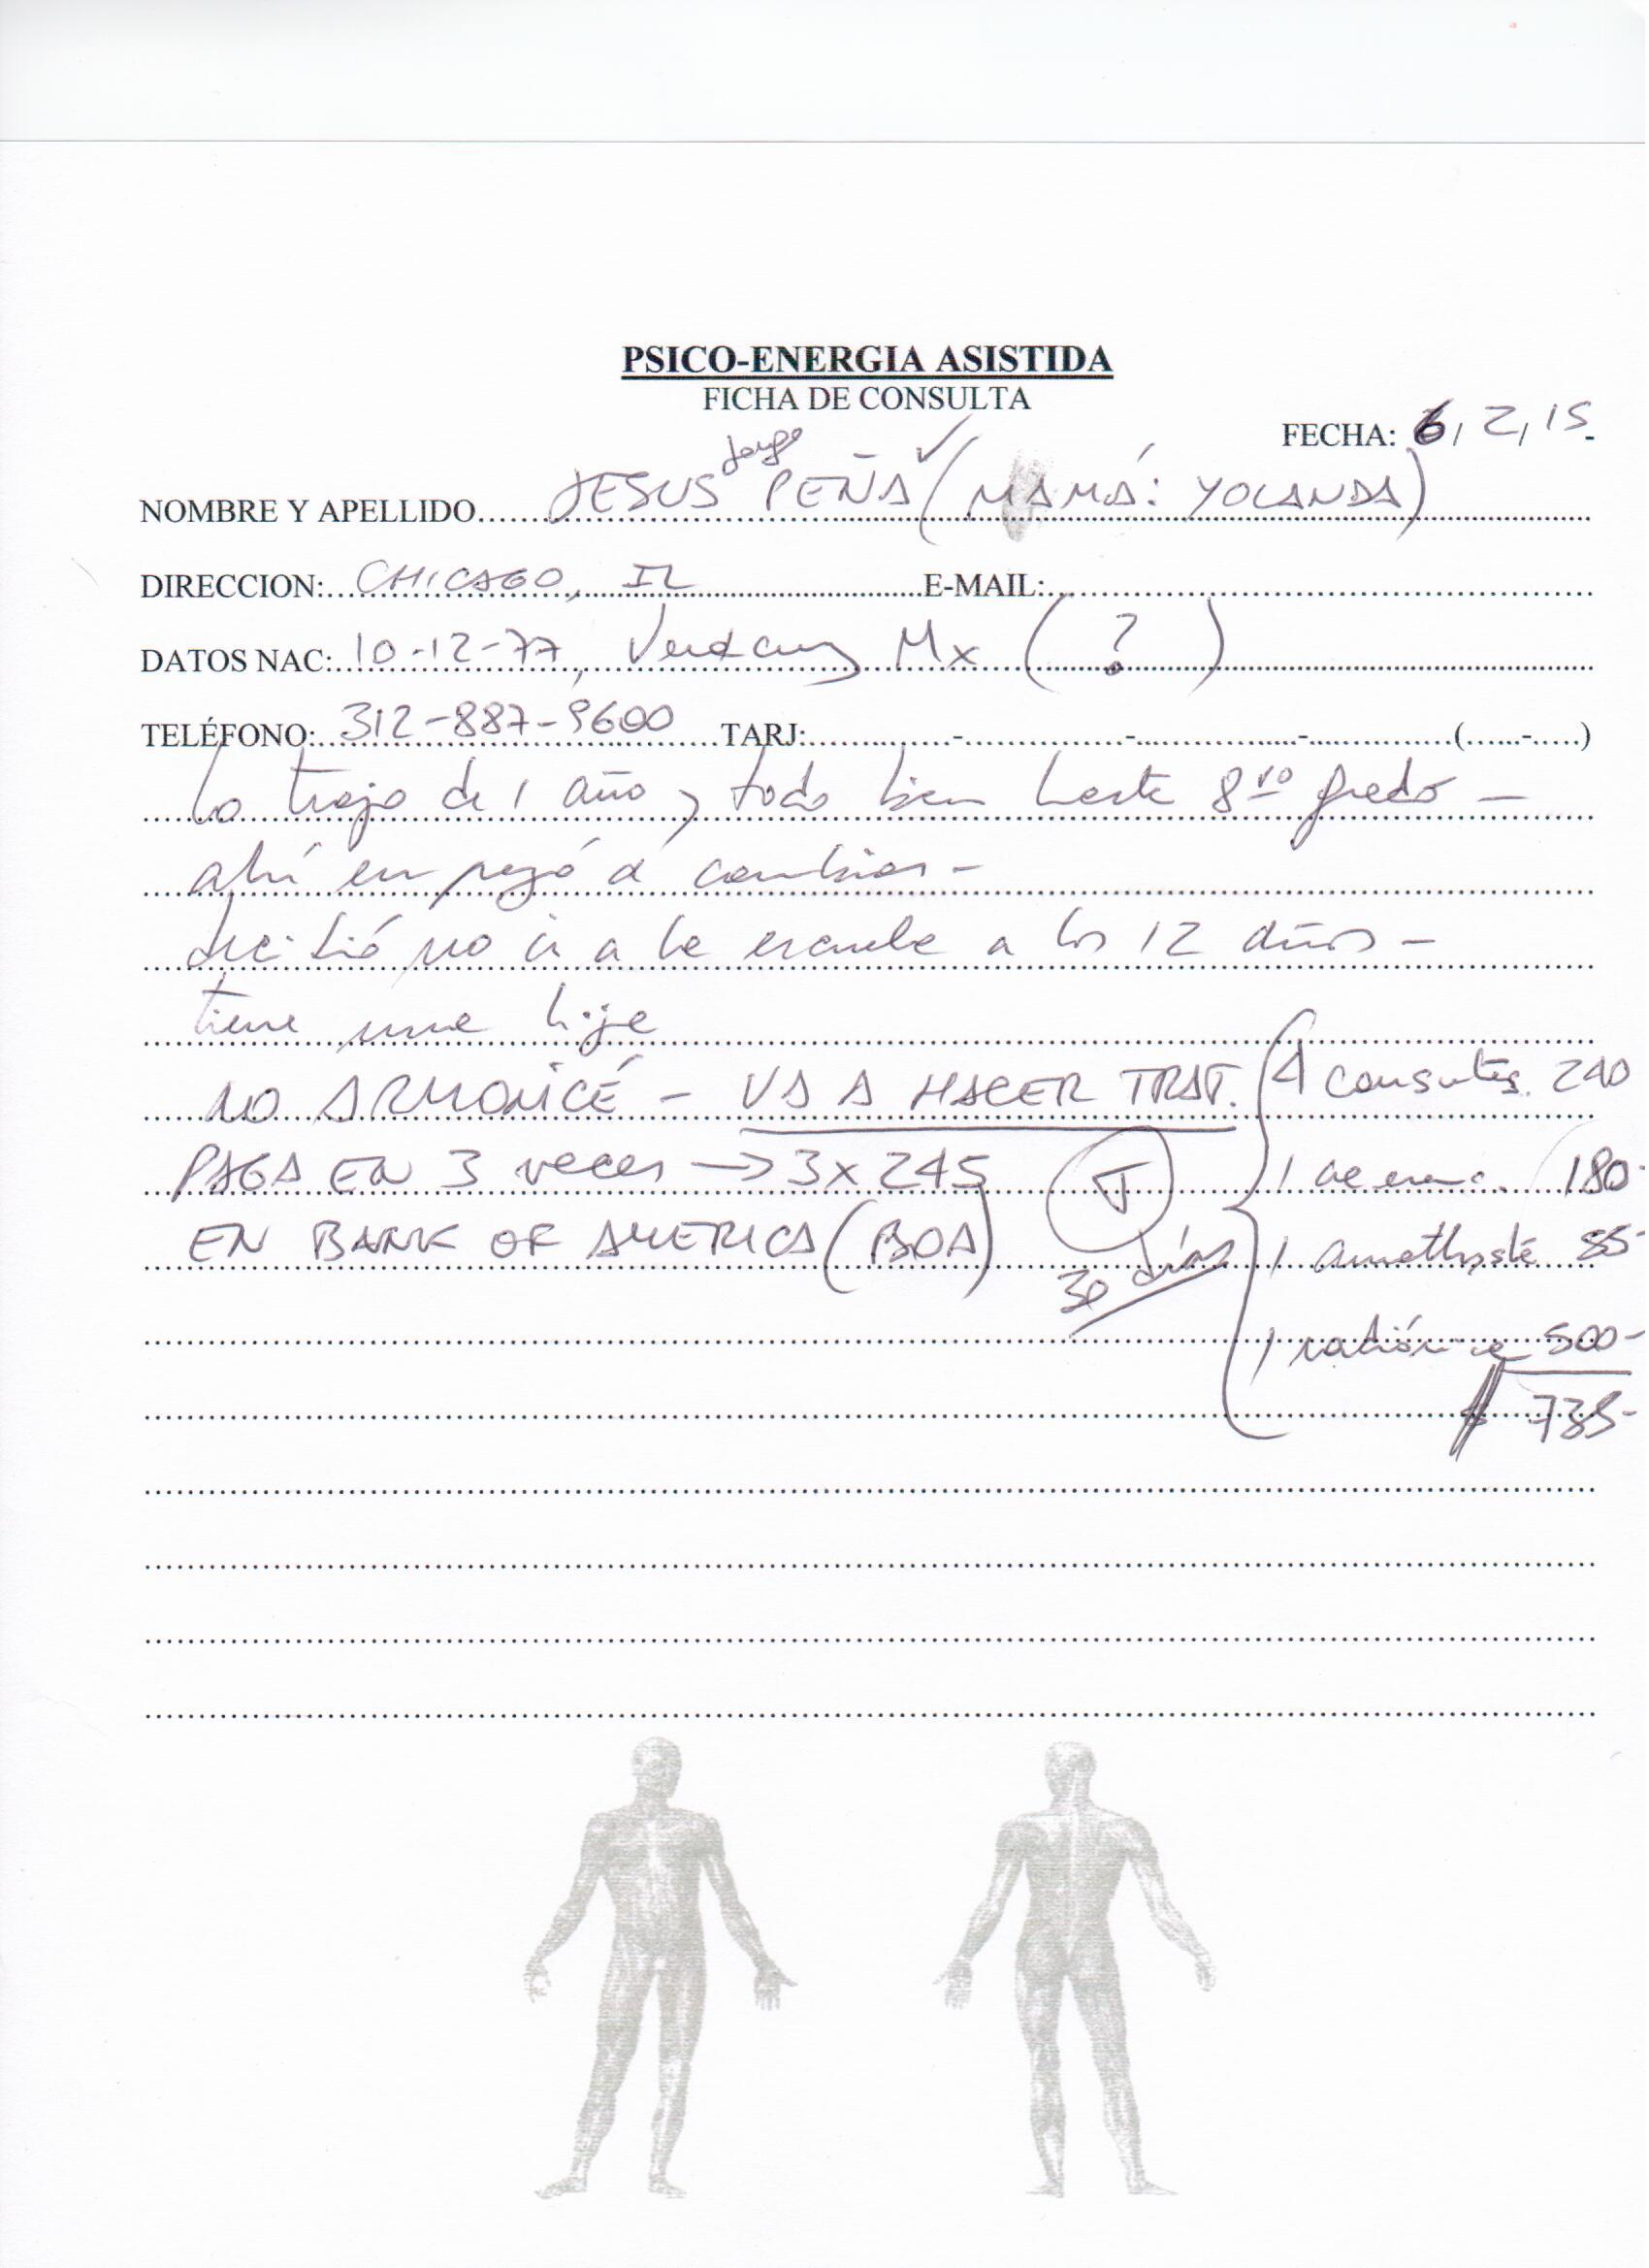 PSICO-ENERGIA ASISTIDA
FICHA DE CONSULTA
FECHA: 6, 2, 15-
NOMBRE Y APELLIDO JESUS Jorge PEÑA ✓ (MAMÁ: YOLANDA)
DIRECCION: CHICAGO, IL E-MAIL:
DATOS NAC: 10-12-77, Veracruz Mx (?)
TELÉFONO: 312-887-9600 TARJ: - - - ( - )
Lo trajo de 1 año, todo bien hasta 8vo grado -
ahí empezó a cambiar -
decidió no ir a la escuela a los 12 años -
tiene una hija
NO ARMONICÉ - VA A HACER TRAT. 4 consultas 240
PAGA EN 3 veces → 3x245 T 1 180-
EN BANK OF AMERICA (BOA) 30 días 1 85-
1 500-
$ 735-